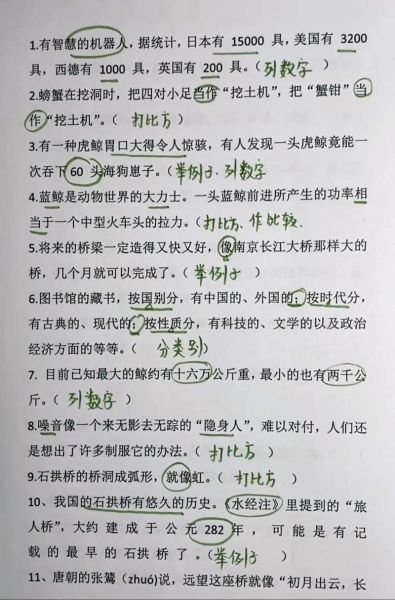 1.有智慧的机器人，据统计，日本有 15000 具，美国有 3200
具，西德有 1000 具，英国有 200 具。（列数字）
2.螃蟹在挖洞时，把四对小足当作“挖土机”，把“蟹钳”当
作“挖土机”。（打比方）
3.有一种虎鲸胃口大得令人惊骇，有人发现一头虎鲸竟能一
次吞下 60 头海狗崽子。（举例子、列数字）
4.蓝鲸是动物世界的大力士。一头蓝鲸前进所产生的功率相
当于一个中型火车头的拉力。（打比方、作比较.
5.将来的桥梁一定造得又快又好，像南京长江大桥那样大的
桥，几个月就可以完成了。（举例子）
6.图书馆的藏书，按国别分，有中国的、外国的；按时代分，
有古典的、现代的；按性质分，有科技的、文学的以及政治
经济方面的等等。（分类别）
7. 目前已知最大的鲸约有十六万公斤重，最小的也有两千公
斤。（列数字）
8.噪音像一个来无影去无踪的“隐身人”，难以对付，人们还
是想出了许多制服它的办法。（打比方）
9.石拱桥的桥洞成弧形，就像虹。（打比方）
10、我国的石拱桥有悠久的历史。《水经注》里提到的“旅
人桥”，大约建成于公元 282 年，可能是有记
载的最早的石拱桥了。（举例子）
11、唐朝的张鷟（zhuó)说，远望这座桥就像“初月出云，长